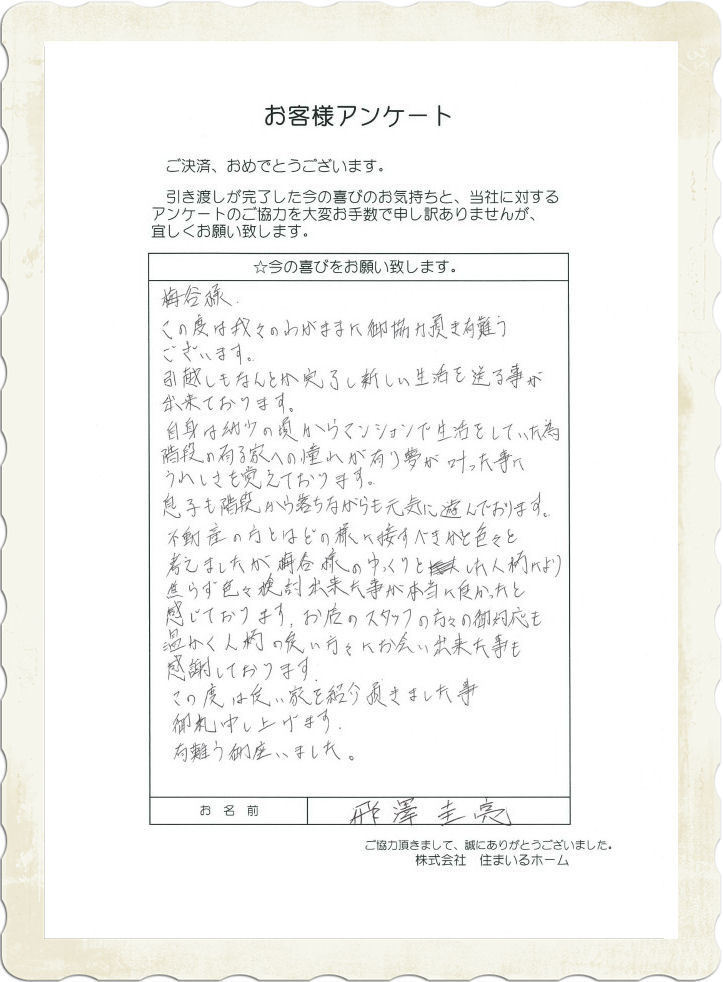 お客様アンケート
ご決済、おめでとうございます。
引き渡しが完了した今の喜びのお気持ちと、当社に対する
アンケートのご協力を大変お手数で申し訳ありませんが、
宜しくお願い致します。
☆今の喜びをお願い致します。
梅谷様.
この度は我々のわがままに御協力頂き有難う
ございます。
引越しもなんとか完了し新しい生活を送る事が
出来ております。
自身は幼少の頃からマンションで生活をしていた為
階段の有る家への憧れが有り夢が叶った事に
うれしさを覚えております。
息子も階段から落ちながらも元気に遊んでおります。
不動産の方とはどの様に接すべきかと色々と
考えましたが梅谷様のゆっくりとした人柄により
焦らず色々検討出来た事が本当に良かったと
感じております. お店のスタッフの方々の御対応も
温かく人柄の良い方々にお会い出来た事も
感謝しております.
この度は良い家を紹介頂きました事
御礼申し上げます.
有難う御座いました。
お名前
澤圭亮
ご協力頂きまして、誠にありがとうございました。
株式会社 住まいるホーム